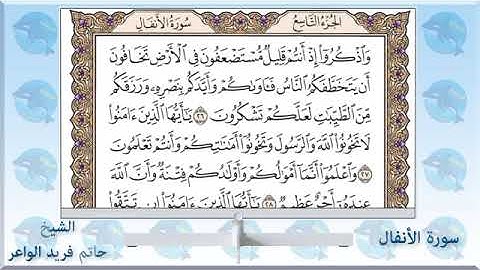 سورة الأنفال
الجزء التاسع
وَاذْكُرُوا إِذْ أَنتُمْ قَلِيلٌ مُّسْتَضْعَفُونَ فِي الْأَرْضِ تَخَافُونَ
أَن يَتَخَطَّفَكُمُ النَّاسُ فَآوَىٰكُمْ وَأَيَّدَكُم بِنَصْرِهِ وَرَزَقَكُم
مِّنَ الطَّيِّبَٰتِ لَعَلَّكُمْ تَشْكُرُونَ ٢٦ يَٰأَيُّهَا الَّذِينَ ءَامَنُوا
لَا تَخُونُوا اللَّهَ وَالرَّسُولَ وَتَخُونُوا أَمَٰنَٰتِكُمْ وَأَنتُمْ تَعْلَمُونَ
٢٧ وَاعْلَمُوا أَنَّمَا أَمْوَٰلُكُمْ وَأَوْلَٰدُكُمْ فِتْنَةٌ وَأَنَّ اللَّهَ
عِندَهُ أَجْرٌ عَظِيمٌ ٢٨ يَٰأَيُّهَا الَّذِينَ ءَامَنُوا إِن تَتَّقُوا
سورة الأنفال
الشيخ
حاتم فريد الواعر